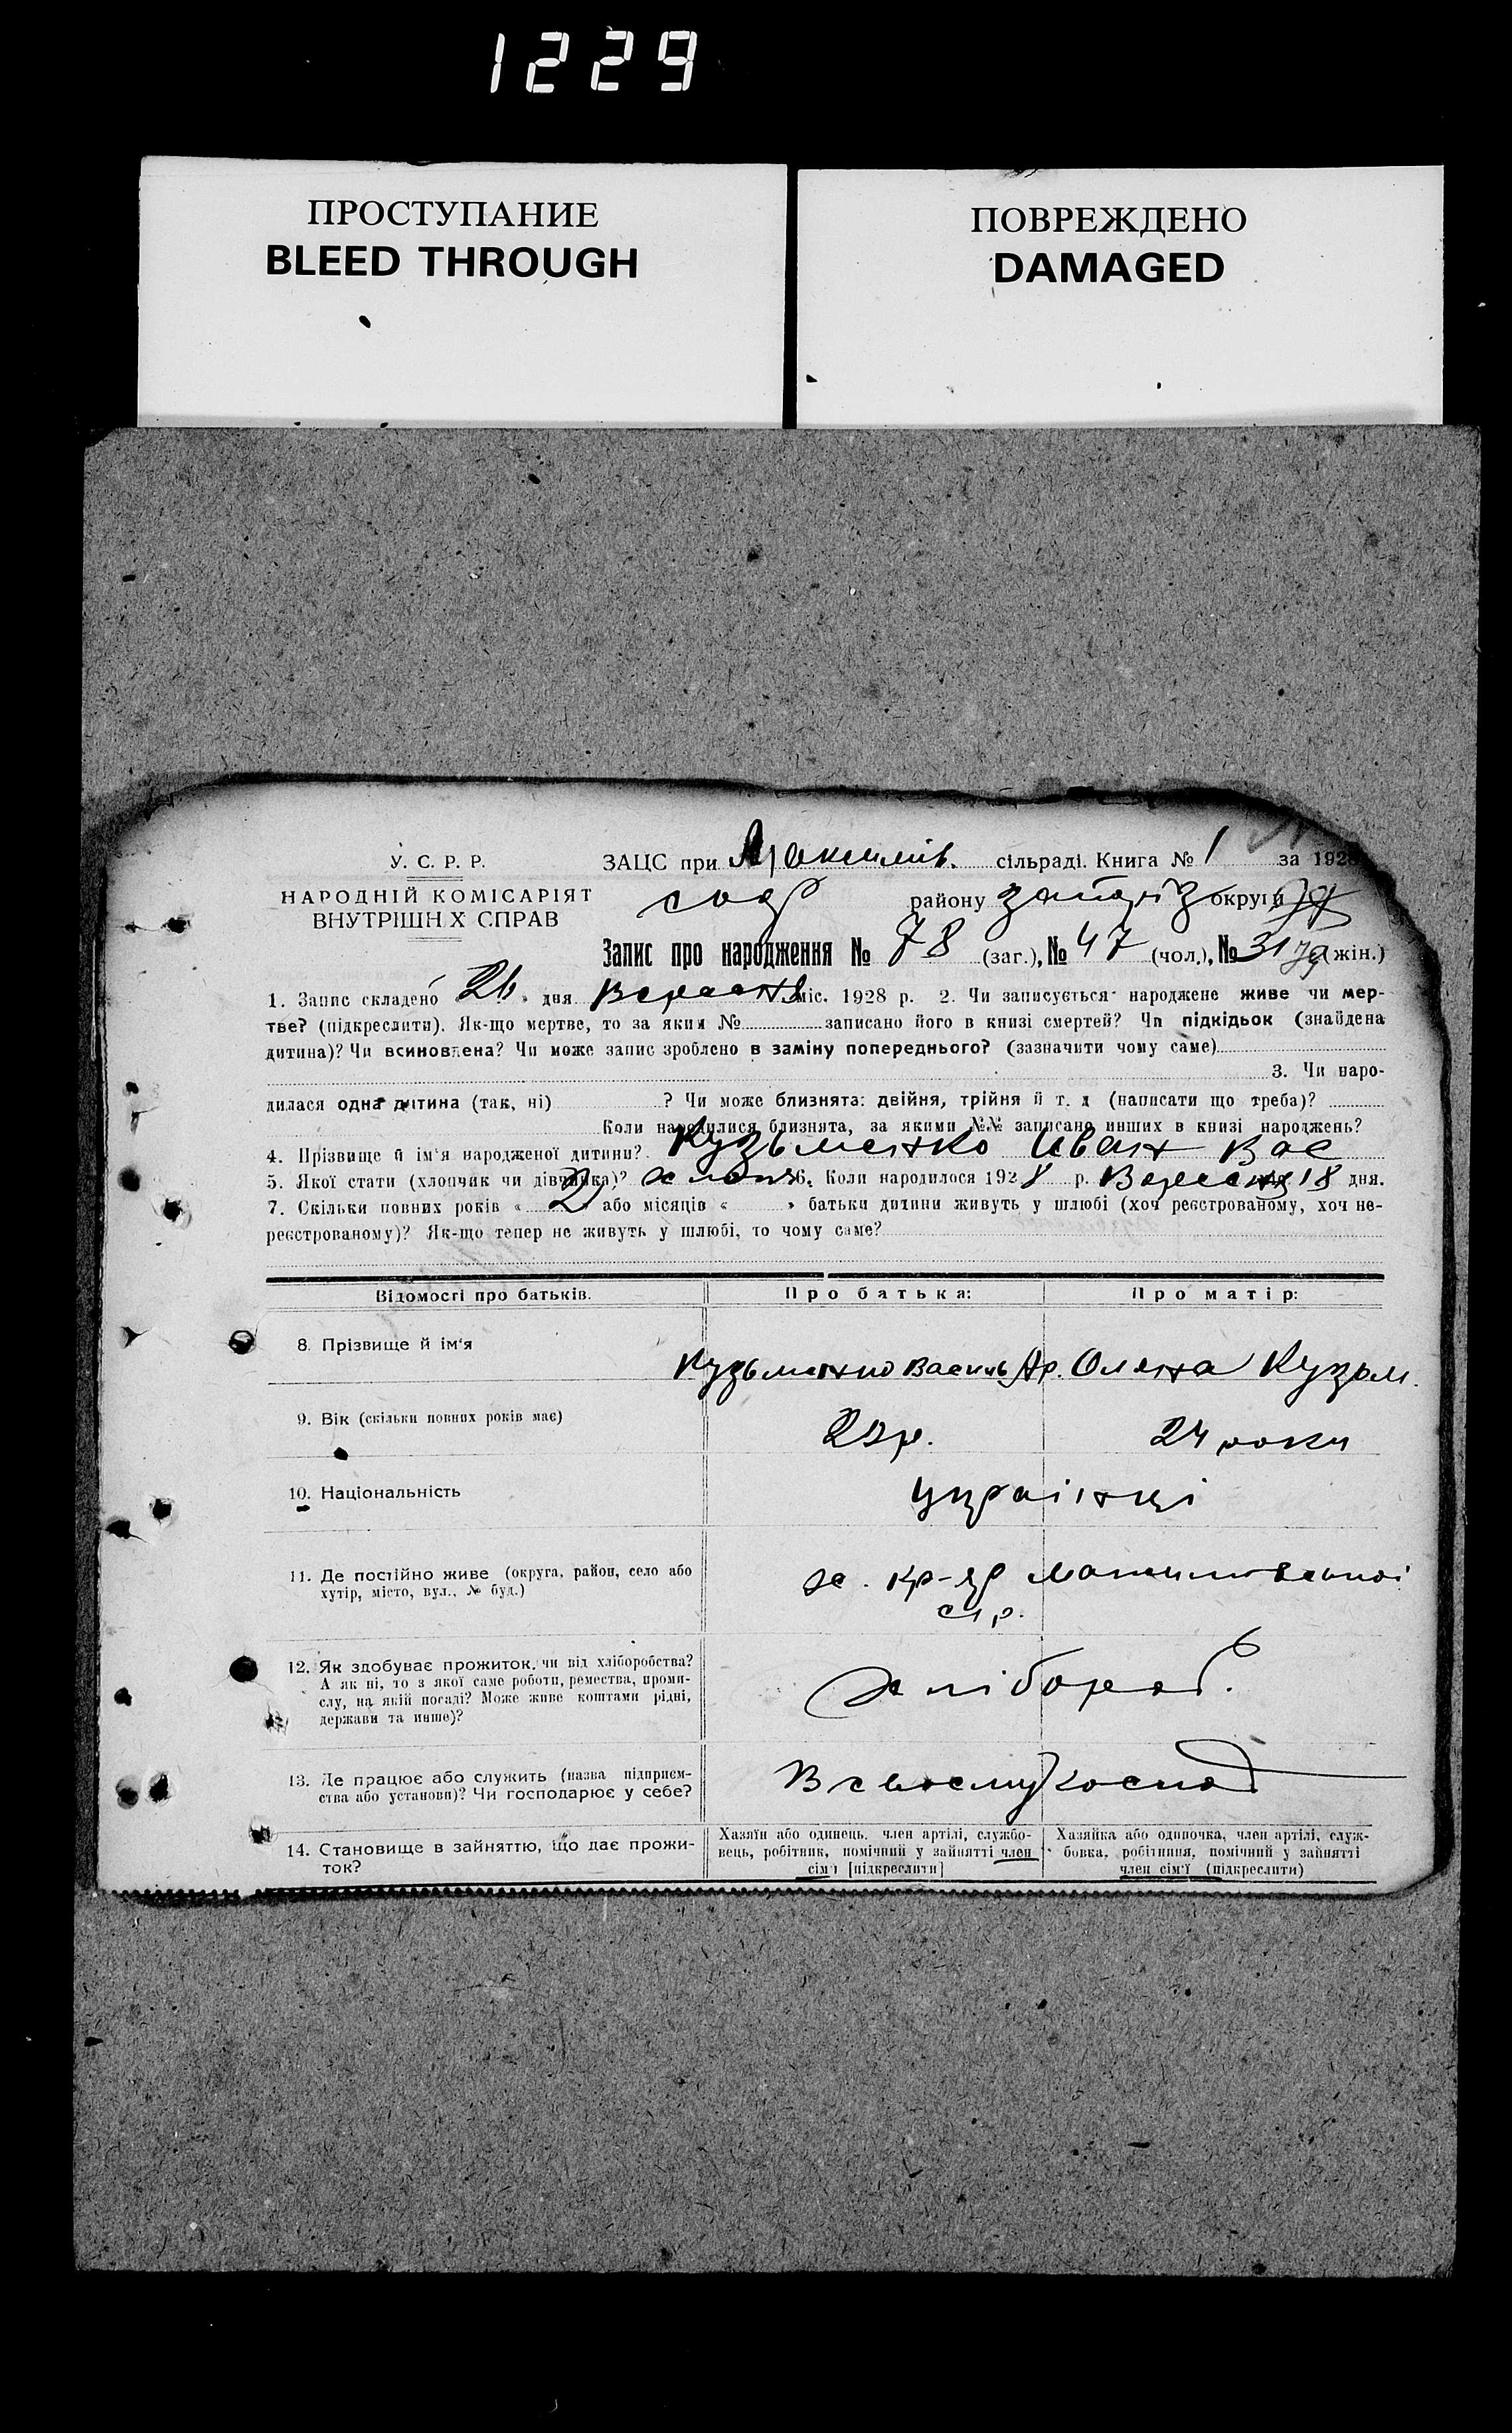 1229
ПРОСТУПАНИЕ
BLEED THROUGH
ПОВРЕЖДЕНО
DAMAGED
У. С. Р. Р.
НАРОДНІЙ КОМІСАРІЯТ
ВНУТРІШН Х СПРАВ
ЗАЦС при сільраді. Книга № 1 за 1928
району округи
Запис про народження № 78 (заг.), № 47 (чол.), № 31 (жін.)
1. Запис складено 26 дня Вересня міс. 1928 р. 2. Чи записується народжене живе чи мер-
тве? (підкреслити). Як-що мертве, то за яким № записано його в книзі смертей? Чи підкідьок (знайдена
дитина)? Чи всиновлена? Чи може запис зроблено в заміну попереднього? (зазначити чому саме)
3. Чи наро-
дилася одна дитина (так, ні) ? Чи може близнята: двійня, трійня й т. д (написати що треба)?
Коли народилися близнята, за якими №№ записано инших в книзі народжень?
4. Прізвище й ім'я народженої дитини? Кузьменко Иван Вас
5. Якої стати (хлопчик чи дівчинка)? хлопч 6. Коли народилося 1928 р. Вересня 18 дня.
7. Скільки повних років « 2 » або місяців « » батьки дитини живуть у шлюбі (хоч реєстрованому, хоч не-
реєстрованому)? Як-що тепер не живуть у шлюбі, то чому саме?
Відомості про батьків.
Про батька:
Про матір:
8. Прізвище й ім'я
Кузьменко Василь Ар. Оляна Кузьм.
9. Вік (скільки повних років має)
24 роки
10. Національність
українці
11. Де постійно живе (округа, район, село або
хутір, місто, вул., № буд.)
х. Кр-яр
с/р.
12. Як здобуває прожиток, чи від хліборобства?
А як ні, то з якої саме роботи, ремества, проми-
слу, на якій посаді? Може живе коштами рідні,
держави та инше)?
хлібороб.
13. Де працює або служить (назва підприєм-
ства або установи)? Чи господарює у себе?
В своєму господ
14. Становище в зайняттю, що дає прожи-
ток?
Хазяїн або одинець, член артілі, службо-
вець, робітник, помічний у зайнятті член
сім'ї [підкреслити]
Хазяйка або одиночка, член артілі, служ-
бовка, робітниця, помічний у зайнятті
член сім'ї (підкреслити)